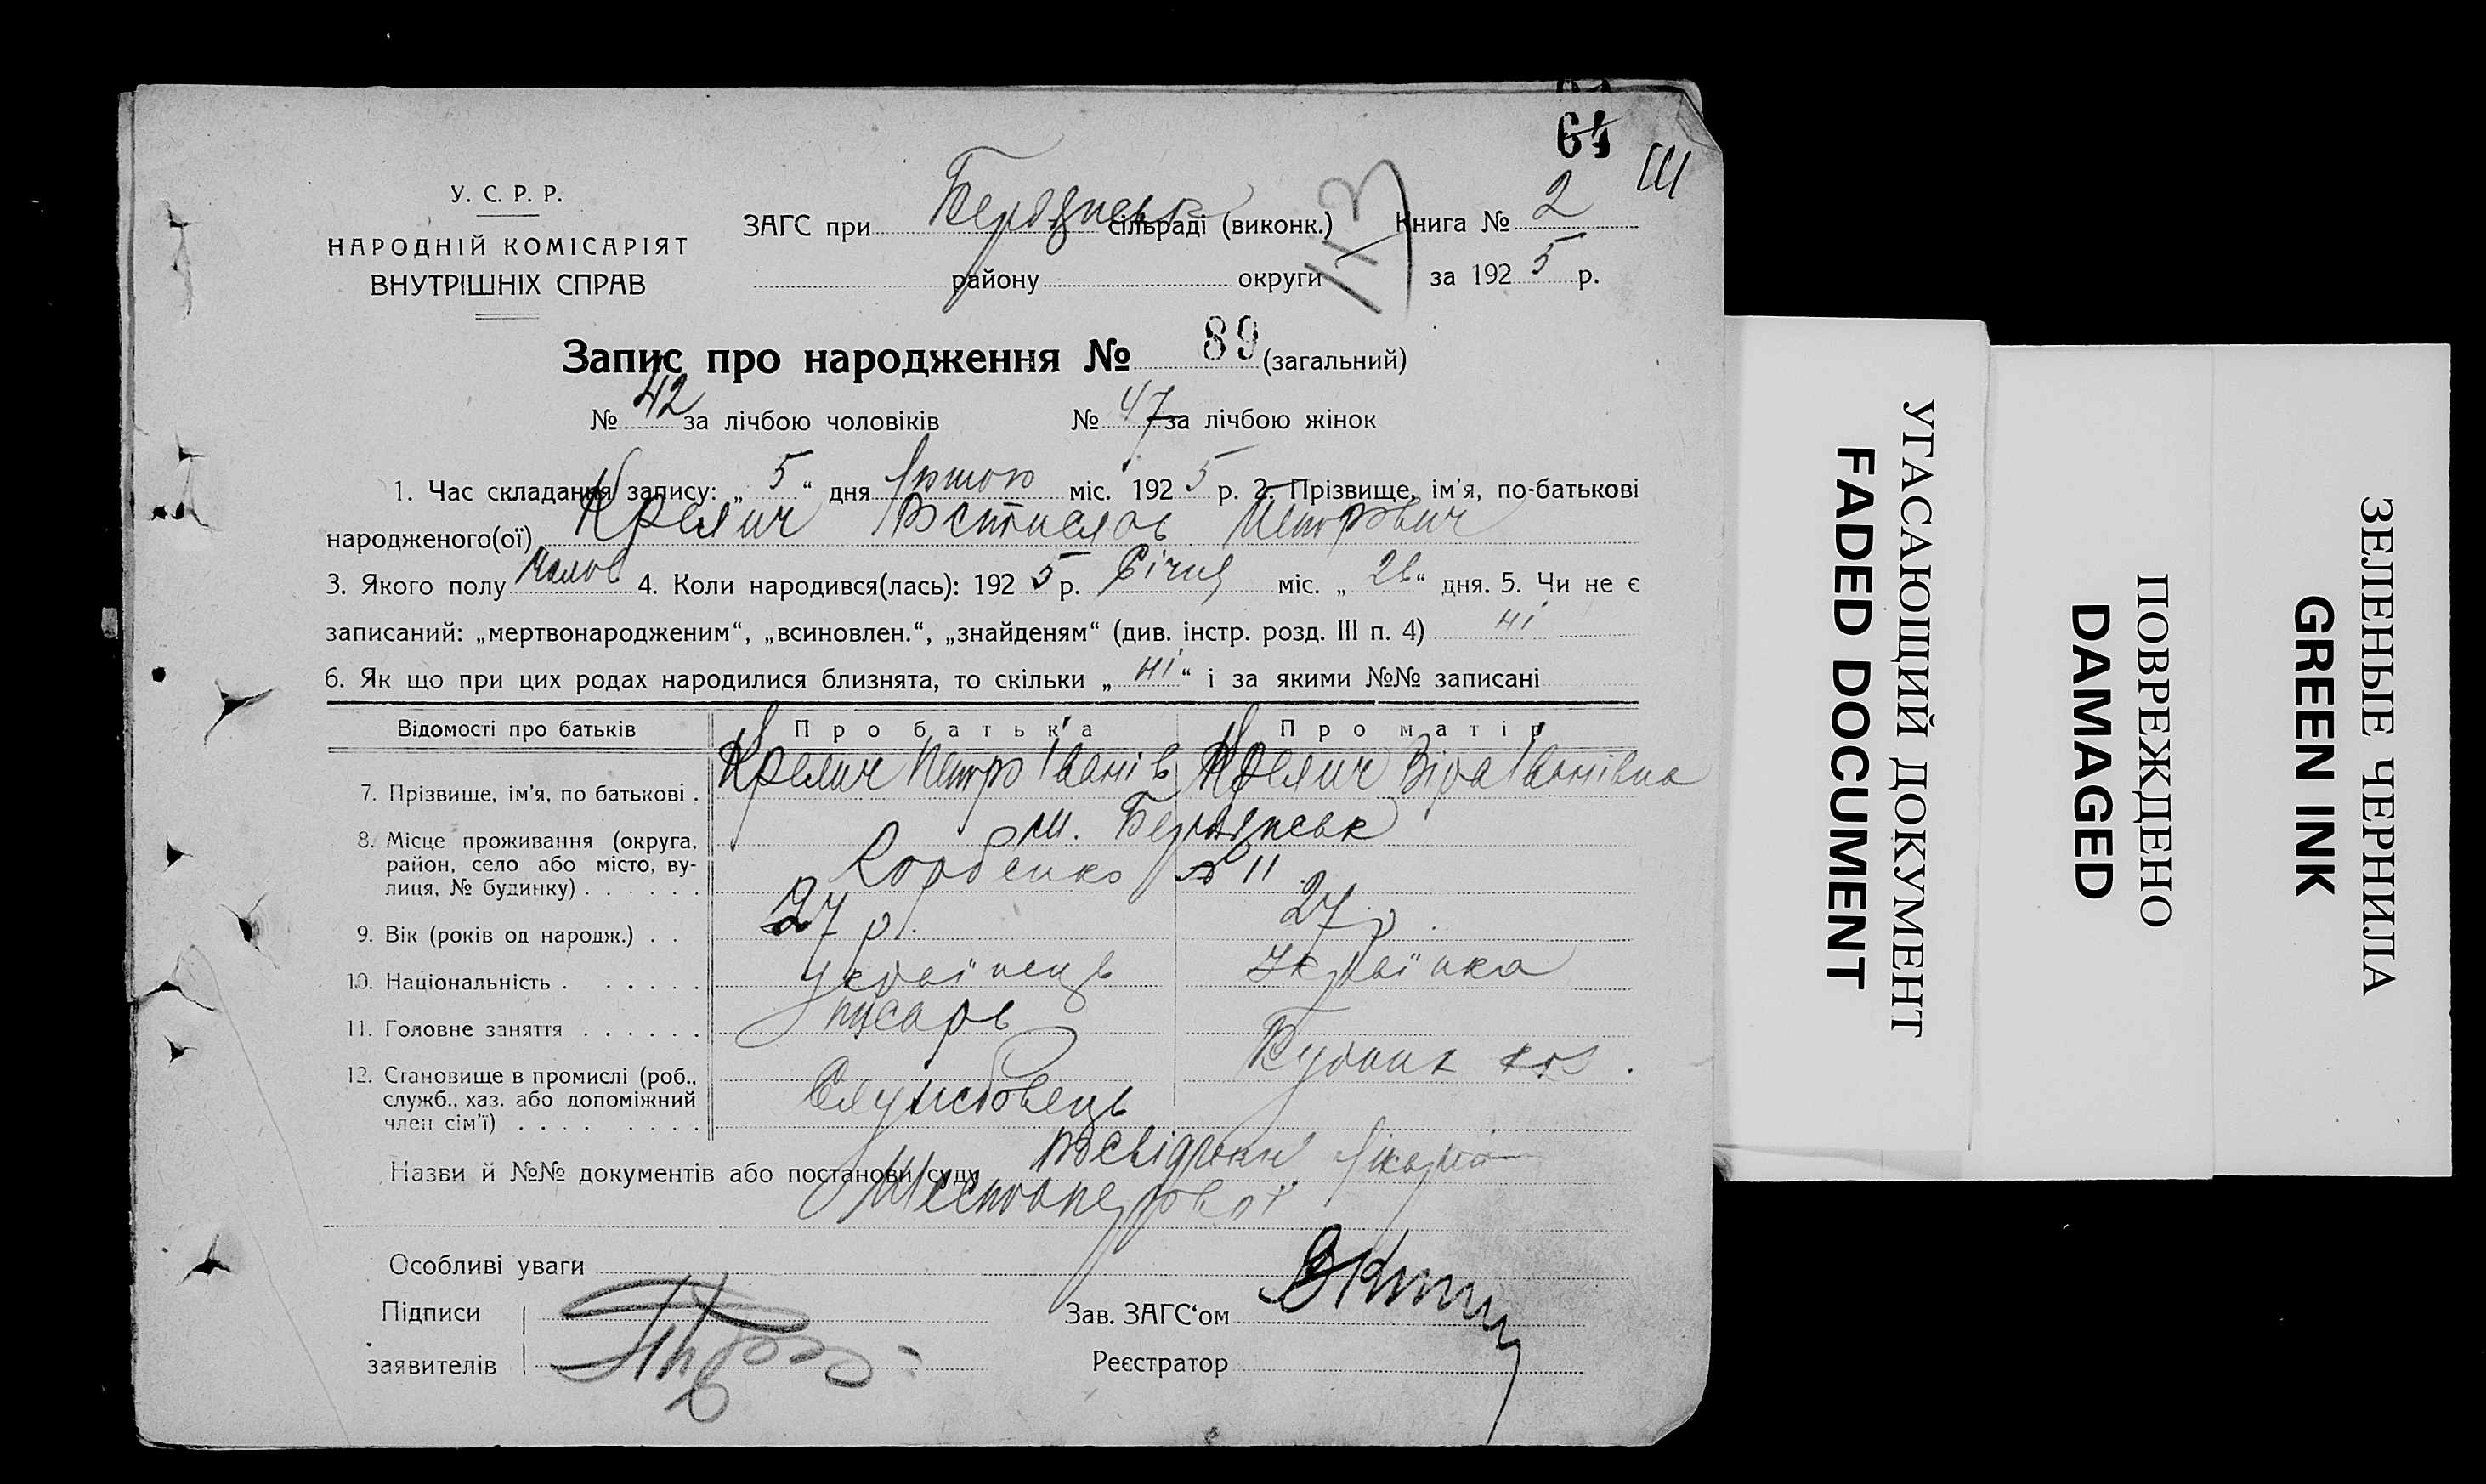 64
III
У. С. Р. Р.
НАРОДНІЙ КОМІСАРІЯТ
ВНУТРІШНІХ СПРАВ
ЗАГС при Бердянськ сільраді (виконк.) Книга № 2
району округи за 192 5 р.
113
Запис про народження № 89 (загальний)
№ 42 за лічбою чоловіків № 47 за лічбою жінок
1. Час складання запису: „ 5 “ дня Лютого міс. 192 5 р. 2. Прізвище, ім'я, по-батькові
народженого(ої) Петрович
3. Якого полу 4. Коли народився(лась): 192 5 р. Січня міс. „ “ дня. 5. Чи не є
записаний: „мертвонародженим“, „всиновлен.“, „знайденям“ (див. інстр. розд. III п. 4) ні
6. Як що при цих родах народилися близнята, то скільки „ ні “ і за якими №№ записані
Відомості про батьків Про батька Про матір
7. Прізвище, ім'я, по батькові . Петро Іванів Віра Іванівна
8. Місце проживання (округа, м. Бердянськ
район, село або місто, ву-
лиця, № будинку) . . . . . . № 11
9. Вік (років од народж.) . . 27 р. 27 р.
10. Національність . . . . . . українець Українка
11. Головне заняття . . . . . . писарь
12. Становище в промислі (роб.,
служб., хаз. або допоміжний Службовець
член сім'ї) . . . . . . . .
Назви й №№ документів або постанови суду
Особливі уваги
Підписи
заявителів
Зав. ЗАГС‘ом
Реєстратор
УГАСАЮЩИЙ ДОКУМЕНТ
FADED DOCUMENT
ПОВРЕЖДЕНО
DAMAGED
ЗЕЛЕНЫЕ ЧЕРНИЛА
GREEN INK